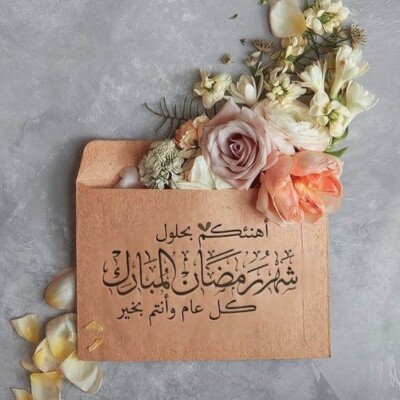 أهنئكم بحلول
شهر رمضان المبارك
كل عام وأنتم بخير